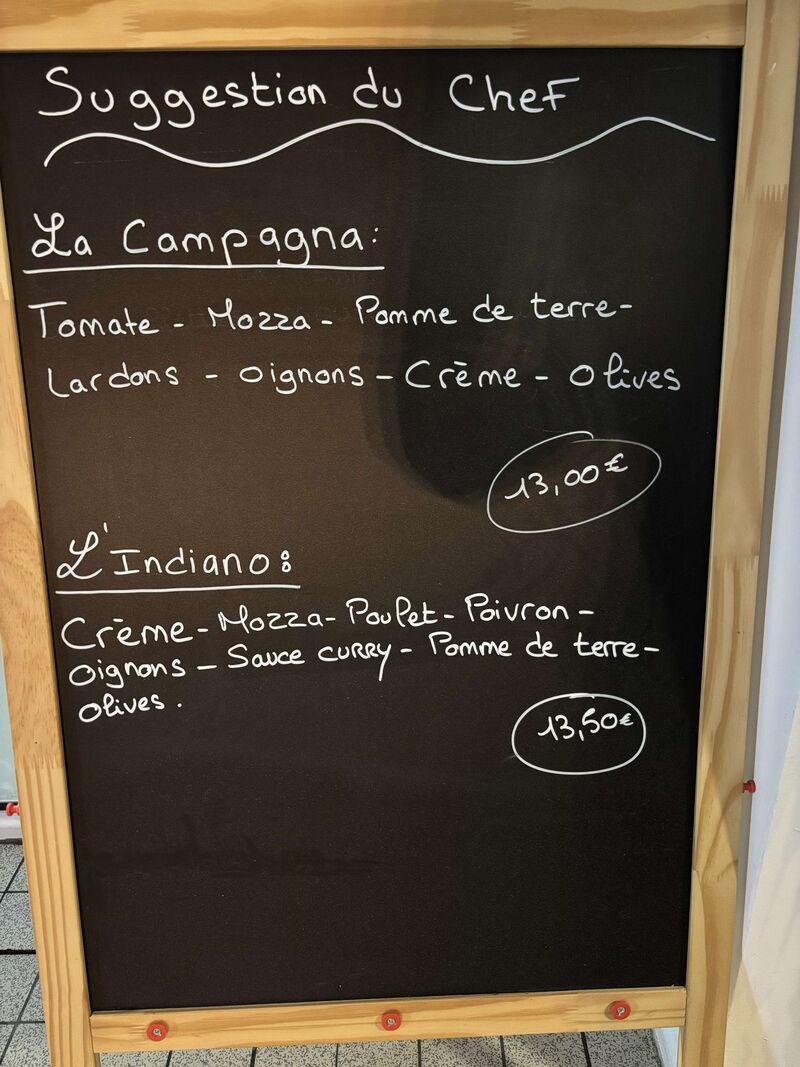 Suggestion du Chef
La Campagna:
Tomate - Mozza - Pomme de terre -
Lardons - Oignons - Crème - Olives
13,00€
L'Indiano:
Crème - Mozza - Poulet - Poivron -
Oignons - Sauce CURRY - Pomme de terre -
Olives.
13,50€